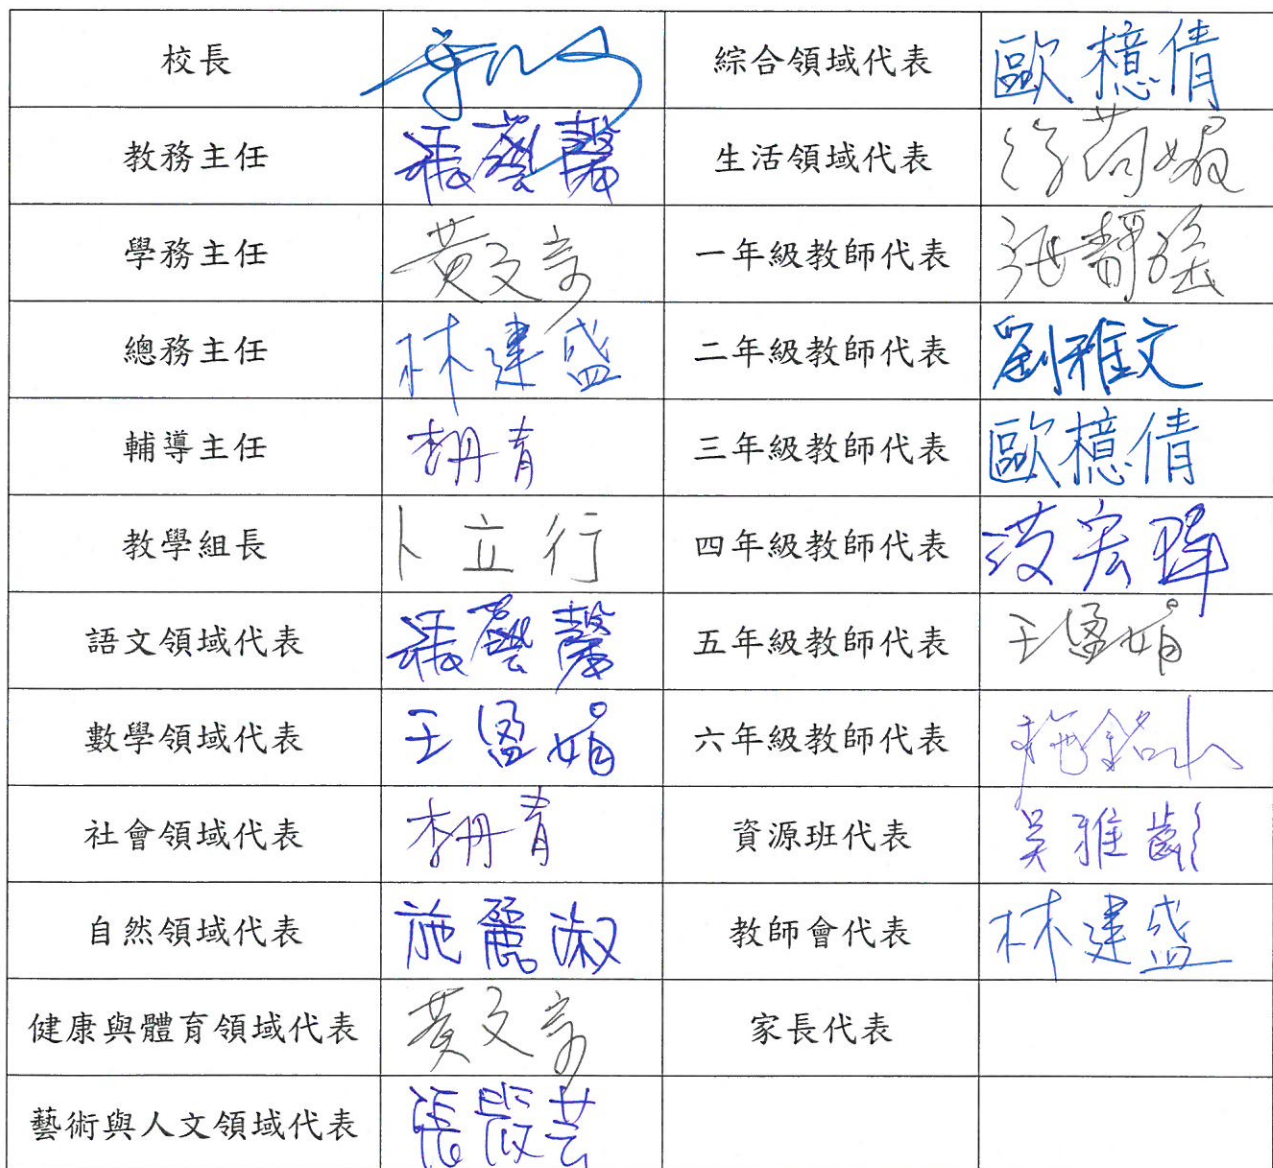 校長 綜合領域代表 歐檍倩
教務主任 張藝馨 生活領域代表
學務主任 黃文 一年級教師代表 張靜
總務主任 林建盛 二年級教師代表 劉雅文
輔導主任 李丹青 三年級教師代表 歐檍倩
教學組長 卜立行 四年級教師代表 宏
語文領域代表 張藝馨 五年級教師代表 王盈娟
數學領域代表 王盈娟 六年級教師代表 施銘
社會領域代表 李丹青 資源班代表 吳雅齡
自然領域代表 施麗淑 教師會代表 林建盛
健康與體育領域代表 黃文 家長代表
藝術與人文領域代表 張 芸